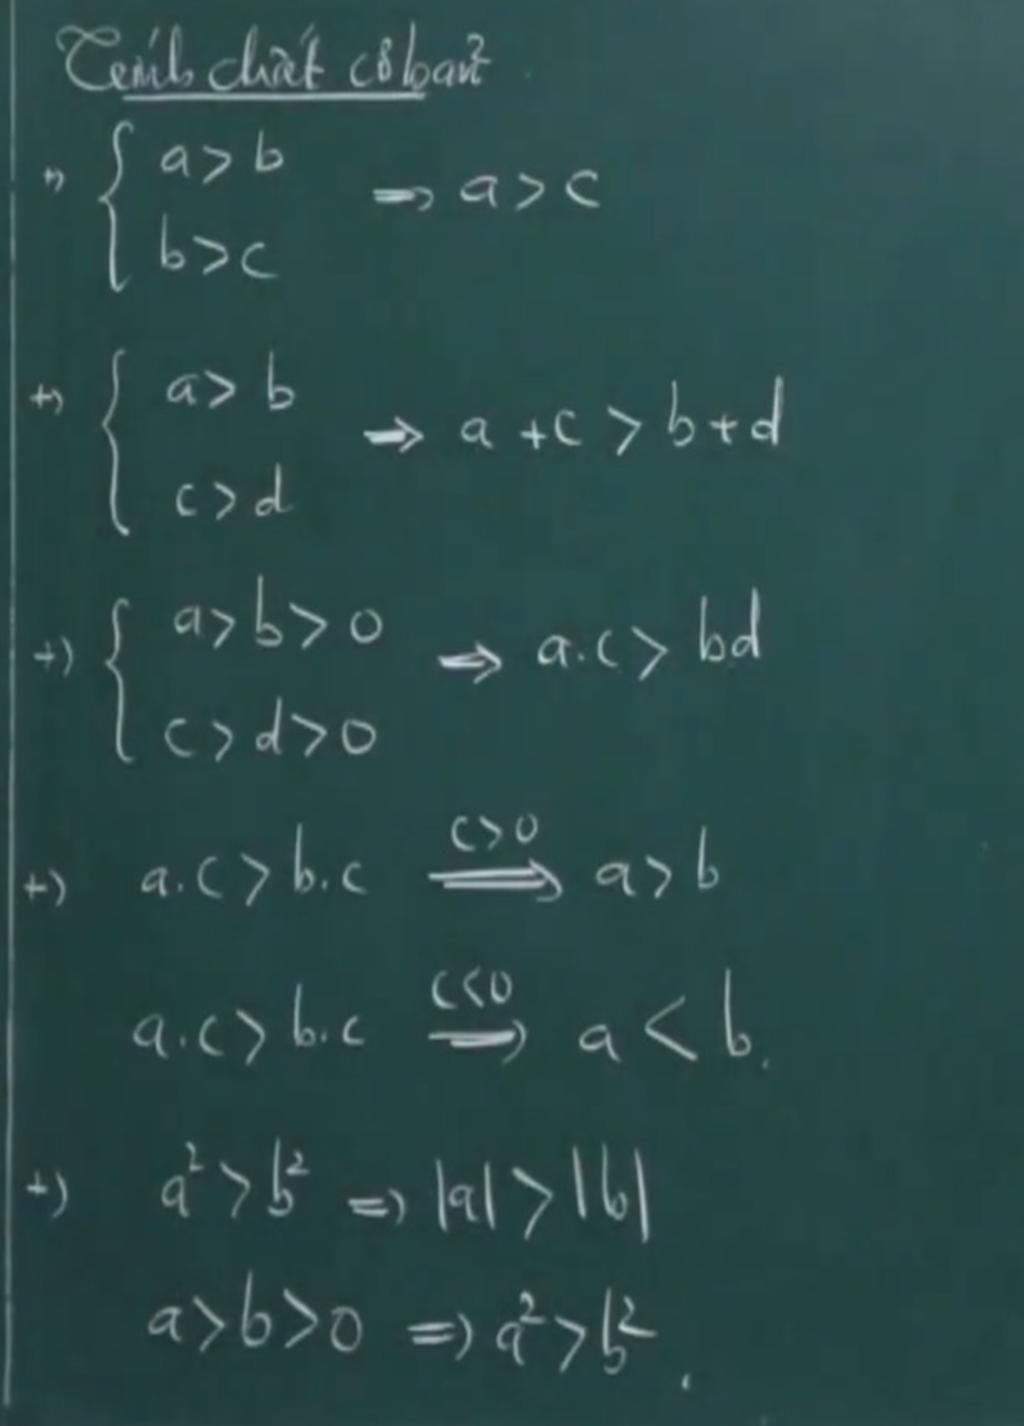 Tính chất cơ bản
+) { a > b
b > c ⇒ a > c
+) { a > b
c > d ⇒ a + c > b + d
+) { a > b > 0
c > d > 0 ⇒ a.c > b.d
+) a.c > b.c ⇒ (c > 0) a > b
a.c > b.c ⇒ (c < 0) a < b.
+) a² > b² ⇒ |a| > |b|
a > b > 0 ⇒ a² > b².